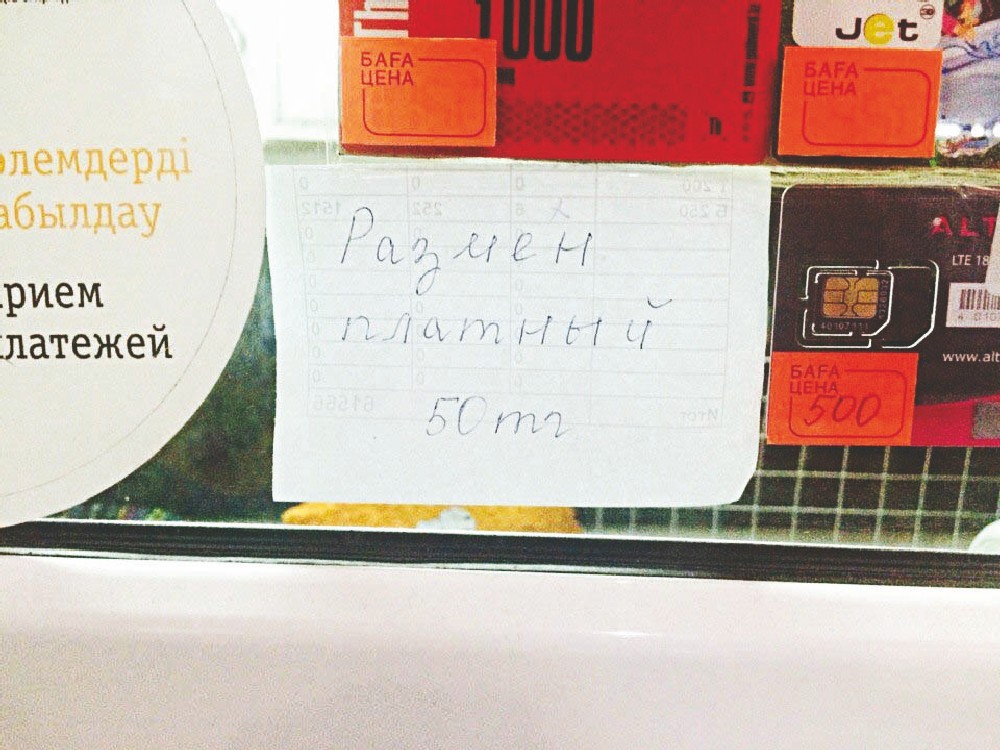 өлемдерді
абылдау
рием
латежей
1000
БАҒА
ЦЕНА
Jet
БАҒА
ЦЕНА
Размен
платный
50 тг
ALT
LTE 18
www.alt
БАҒА
ЦЕНА
500